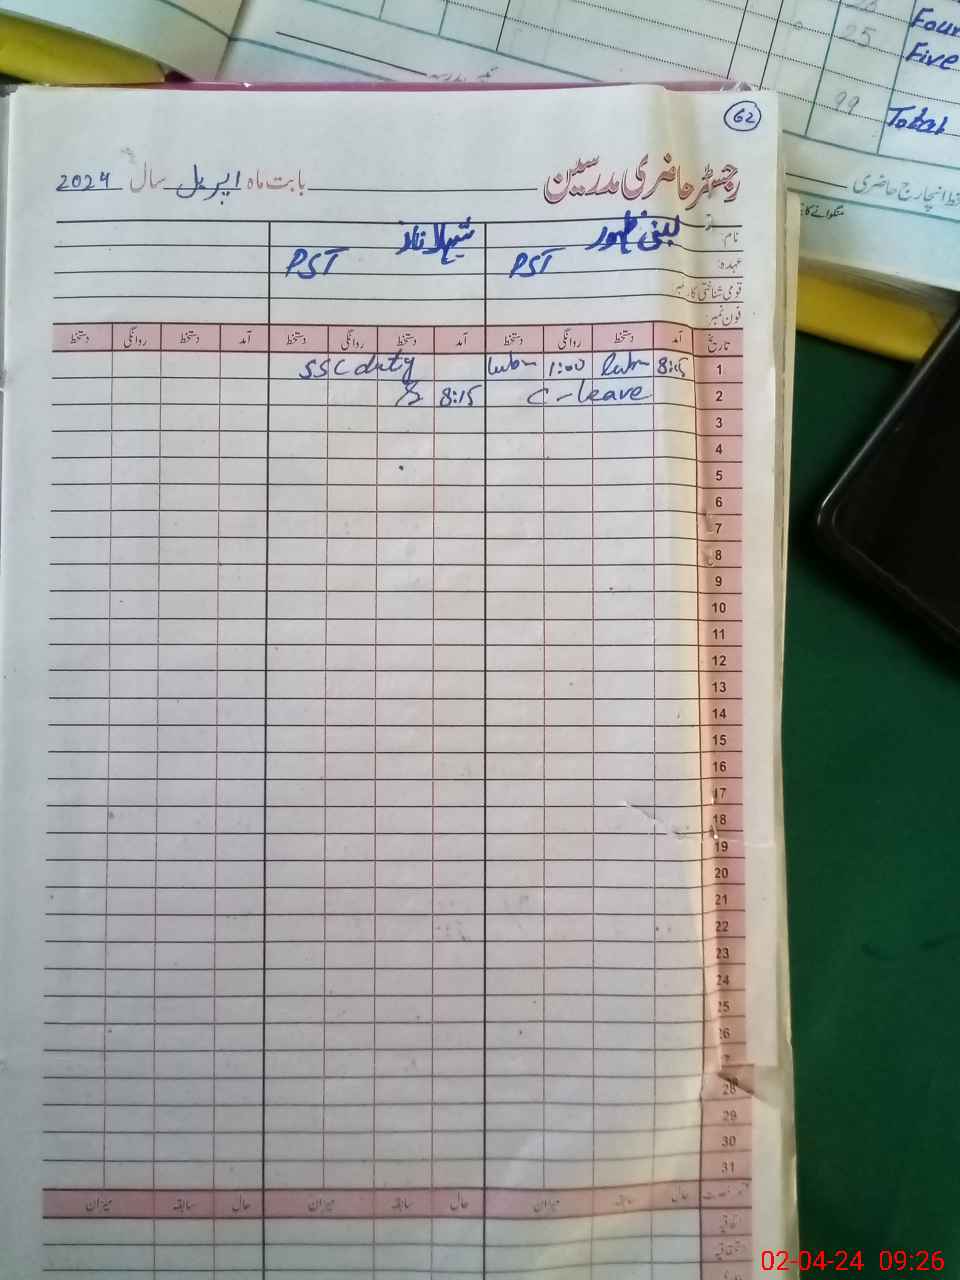 Four
25 Five
99 Total
62
رجسٹر حاضری مدرسین بابت ماہ اپریل سال 2024
انچارج حاضری
نام: لبنیٰ ظہور شہلا ناز
عہدہ: PST PST
قومی شناختی کارڈ نمبر:
فون نمبر:
تاریخ آمد دستخط روانگی دستخط آمد دستخط روانگی دستخط آمد دستخط روانگی دستخط
1 8:15 Lubn 1:00 Lubn SSC duty
2 C-leave 8:15
3
4
5
6
7
8
9
10
11
12
13
14
15
16
17
18
19
20
21
22
23
24
25
26
28
29
30
31
حال سابقہ میزان حال سابقہ میزان حال سابقہ میزان
اتفاقیہ
02-04-24 09:26